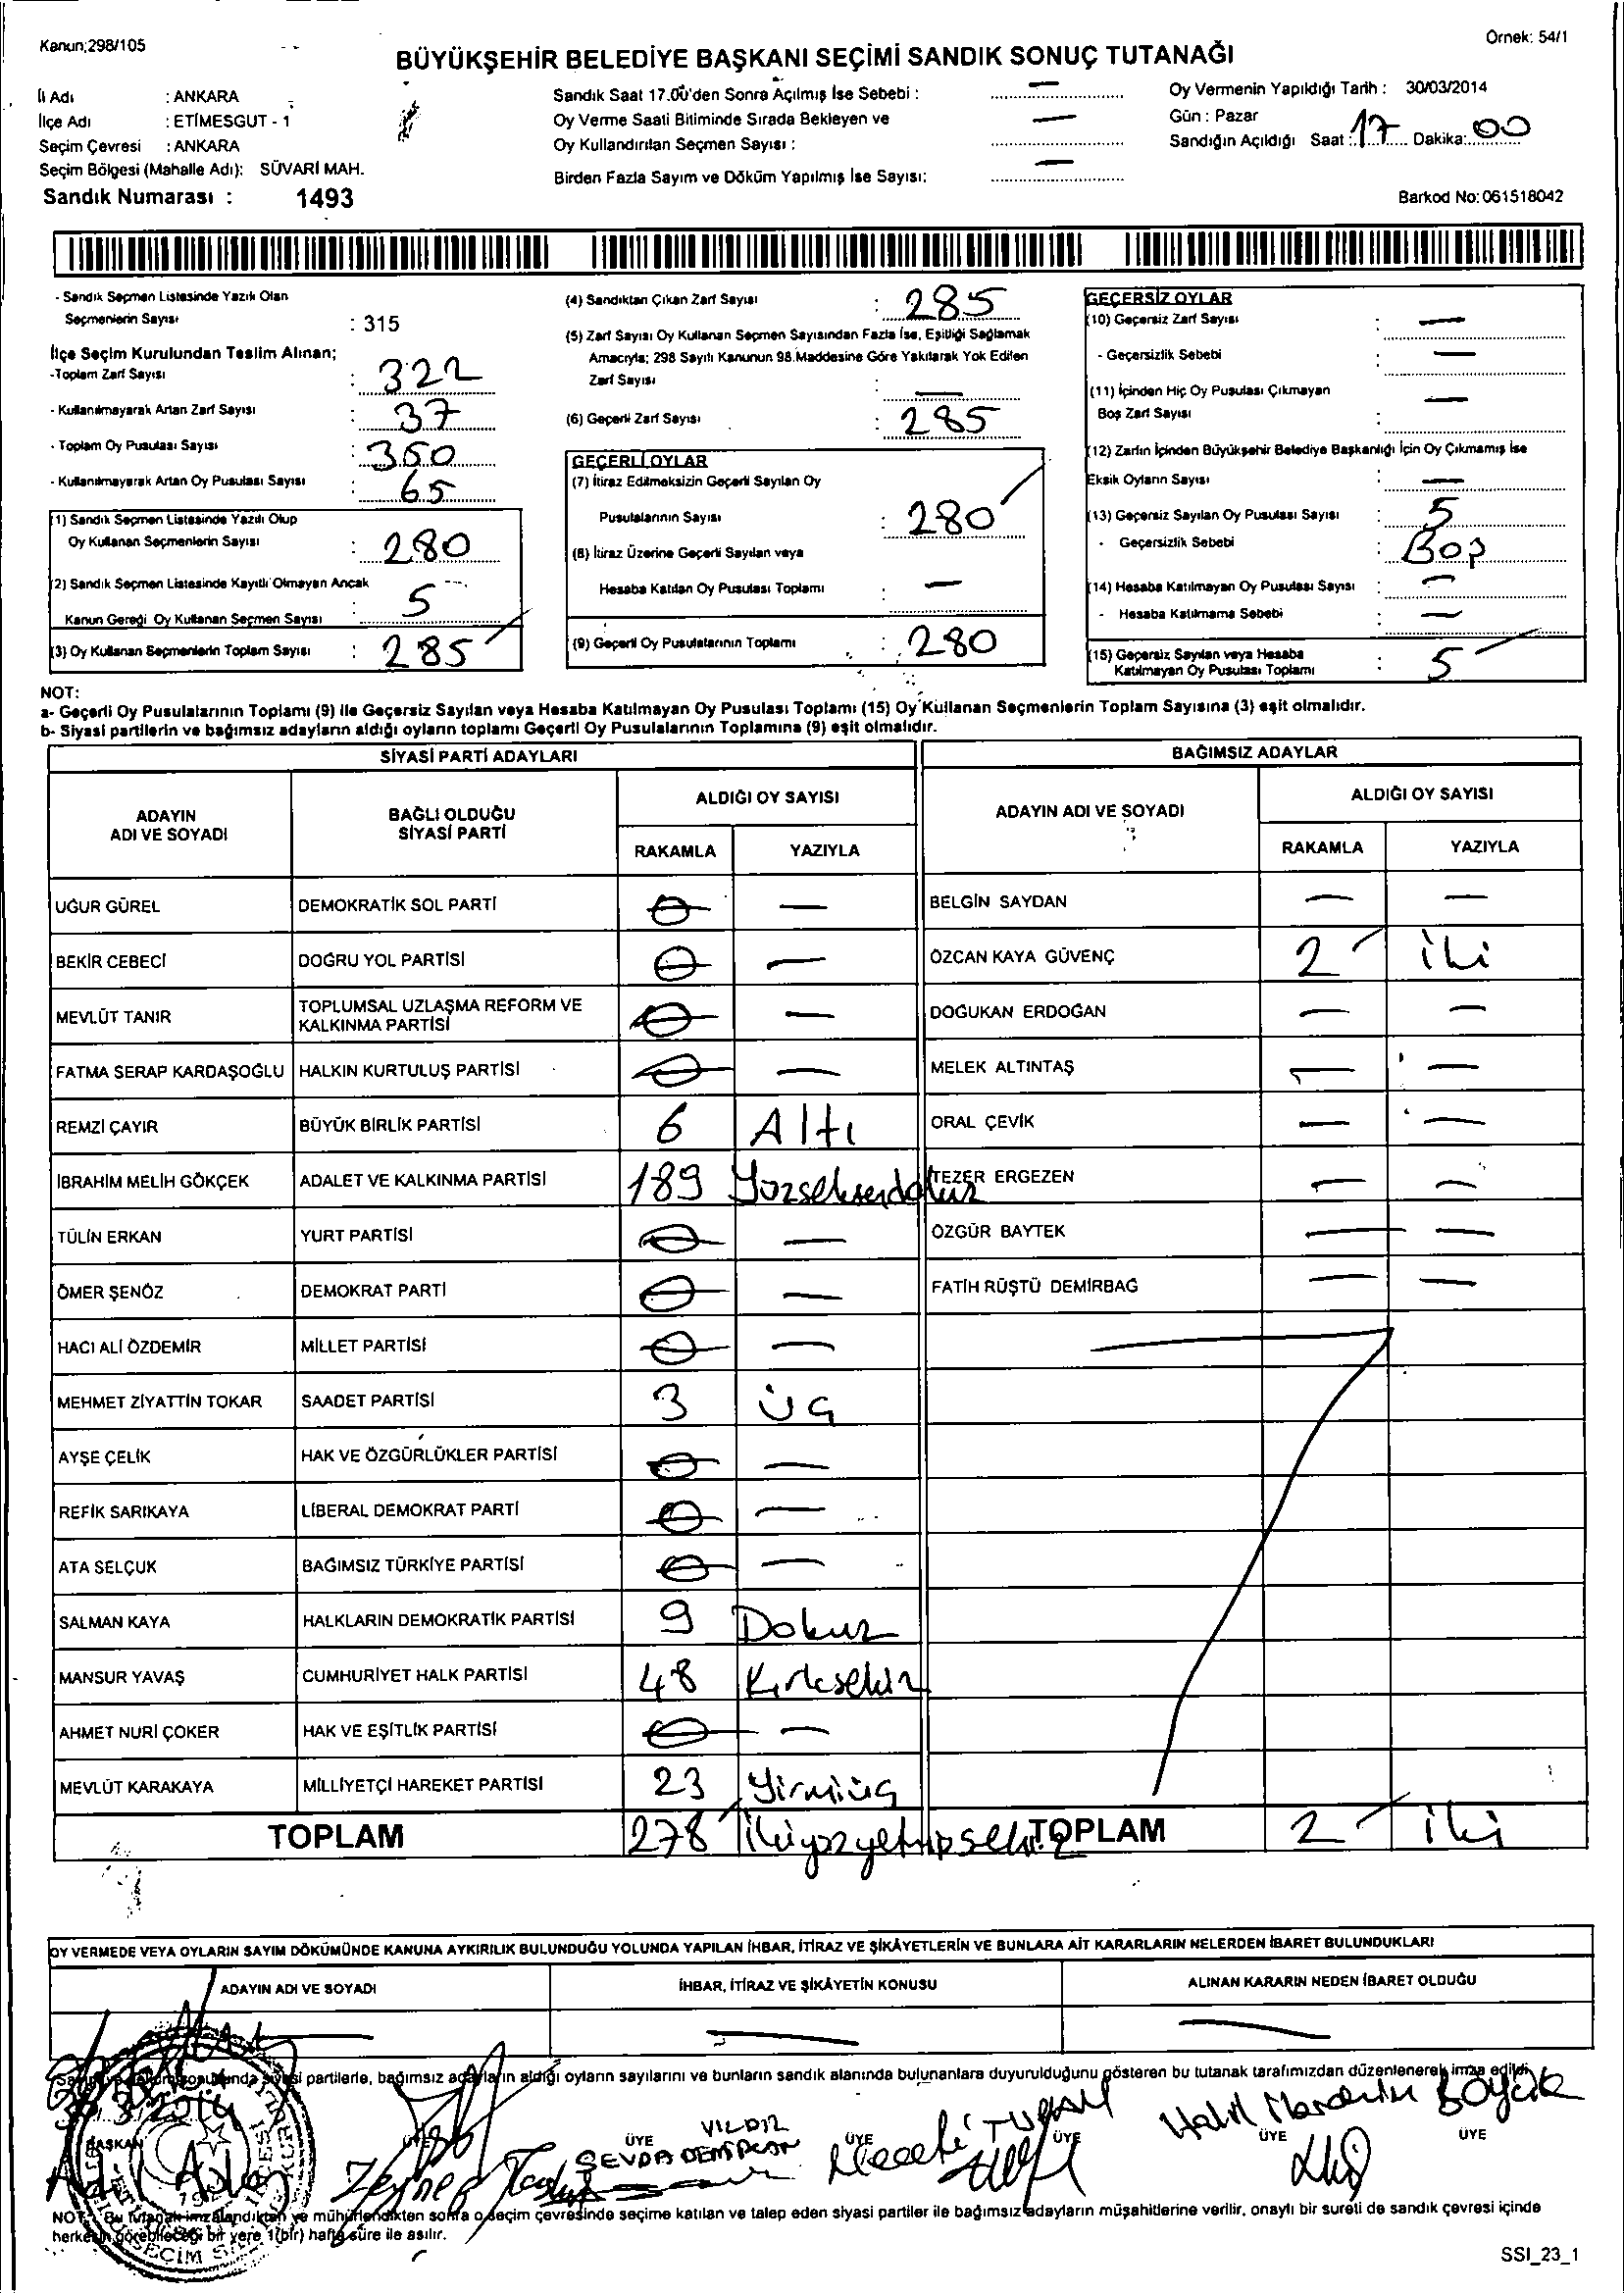 Kanun;298/105
Örnek: 54/1
BÜYÜKŞEHİR BELEDİYE BAŞKANI SEÇİMİ SANDIK SONUÇ TUTANAĞI
İl Adı : ANKARA
İlçe Adı : ETİMESGUT - 1
Seçim Çevresi : ANKARA
Seçim Bölgesi (Mahalle Adı): SÜVARİ MAH.
Sandık Numarası : 1493
Sandık Saat 17.00'den Sonra Açılmış İse Sebebi : —
Oy Verme Saati Bitiminde Sırada Bekleyen ve
Oy Kullandırılan Seçmen Sayısı : —
Birden Fazla Sayım ve Döküm Yapılmış İse Sayısı: —
Oy Vermenin Yapıldığı Tarih : 30/03/2014
Gün : Pazar
Sandığın Açıldığı Saat : 17 Dakika: 00
Barkod No: 061518042
- Sandık Seçmen Listesinde Yazılı Olan
Seçmenlerin Sayısı : 315
İlçe Seçim Kurulundan Teslim Alınan;
-Toplam Zarf Sayısı : 322
- Kullanılmayarak Artan Zarf Sayısı : 37
- Toplam Oy Pusulası Sayısı : 350
- Kullanılmayarak Artan Oy Pusulası Sayısı : 65
(1) Sandık Seçmen Listesinde Yazılı Olup
Oy Kullanan Seçmenlerin Sayısı : 280
(2) Sandık Seçmen Listesinde Kayıtlı Olmayan Ancak
Kanun Gereği Oy Kullanan Seçmen Sayısı : 5
(3) Oy Kullanan Seçmenlerin Toplam Sayısı : 285
(4) Sandıktan Çıkan Zarf Sayısı : 285
(5) Zarf Sayısı Oy Kullanan Seçmen Sayısından Fazla İse, Eşitliği Sağlamak
Amacıyla; 298 Sayılı Kanunun 98.Maddesine Göre Yakılarak Yok Edilen
Zarf Sayısı : —
(6) Geçerli Zarf Sayısı : 285
GEÇERLİ OYLAR
(7) İtiraz Edilmeksizin Geçerli Sayılan Oy
Pusulalarının Sayısı : 280
(8) İtiraz Üzerine Geçerli Sayılan veya
Hesaba Katılan Oy Pusulası Toplamı : —
(9) Geçerli Oy Pusulalarının Toplamı : 280
GEÇERSİZ OYLAR
(10) Geçersiz Zarf Sayısı : —
- Geçersizlik Sebebi : —
(11) İçinden Hiç Oy Pusulası Çıkmayan
Boş Zarf Sayısı : —
(12) Zarfın İçinden Büyükşehir Belediye Başkanlığı İçin Oy Çıkmamış İse
Eksik Oyların Sayısı : —
(13) Geçersiz Sayılan Oy Pusulası Sayısı : 5
- Geçersizlik Sebebi : Boş
(14) Hesaba Katılmayan Oy Pusulası Sayısı : —
- Hesaba Katılmama Sebebi : —
(15) Geçersiz Sayılan veya Hesaba
Katılmayan Oy Pusulası Toplamı : 5
NOT:
a- Geçerli Oy Pusulalarının Toplamı (9) ile Geçersiz Sayılan veya Hesaba Katılmayan Oy Pusulası Toplamı (15) Oy Kullanan Seçmenlerin Toplam Sayısına (3) eşit olmalıdır.
b- Siyasi partilerin ve bağımsız adayların aldığı oyların toplamı Geçerli Oy Pusulalarının Toplamına (9) eşit olmalıdır.
SİYASİ PARTİ ADAYLARI
ADAYIN ADI VE SOYADI BAĞLI OLDUĞU SİYASİ PARTİ ALDIĞI OY SAYISI
RAKAMLA YAZIYLA
UĞUR GÜREL DEMOKRATİK SOL PARTİ 0 —
BEKİR CEBECİ DOĞRU YOL PARTİSİ 0 —
MEVLÜT TANIR TOPLUMSAL UZLAŞMA REFORM VE KALKINMA PARTİSİ 0 —
FATMA SERAP KARDAŞOĞLU HALKIN KURTULUŞ PARTİSİ 0 —
REMZİ ÇAYIR BÜYÜK BİRLİK PARTİSİ 6 Altı
İBRAHİM MELİH GÖKÇEK ADALET VE KALKINMA PARTİSİ 189 Yüzseksendokuz
TÜLİN ERKAN YURT PARTİSİ 0 —
ÖMER ŞENÖZ DEMOKRAT PARTİ 0 —
HACI ALİ ÖZDEMİR MİLLET PARTİSİ 0 —
MEHMET ZİYATTİN TOKAR SAADET PARTİSİ 3 üç
AYŞE ÇELİK HAK VE ÖZGÜRLÜKLER PARTİSİ 0 —
REFİK SARIKAYA LİBERAL DEMOKRAT PARTİ 0 —
ATA SELÇUK BAĞIMSIZ TÜRKİYE PARTİSİ 0 —
SALMAN KAYA HALKLARIN DEMOKRATİK PARTİSİ 9 Dokuz
MANSUR YAVAŞ CUMHURİYET HALK PARTİSİ 48 Kırksekiz
AHMET NURİ ÇOKER HAK VE EŞİTLİK PARTİSİ 0 —
MEVLÜT KARAKAYA MİLLİYETÇİ HAREKET PARTİSİ 23 Yirmiüç
TOPLAM 278 İkiyüzyetmişsekiz
BAĞIMSIZ ADAYLAR
ADAYIN ADI VE SOYADI ALDIĞI OY SAYISI
RAKAMLA YAZIYLA
BELGİN SAYDAN — —
ÖZCAN KAYA GÜVENÇ 2 iki
DOĞUKAN ERDOĞAN — —
MELEK ALTINTAŞ — —
ORAL ÇEVİK — —
TEZER ERGEZEN — —
ÖZGÜR BAYTEK — —
FATİH RÜŞTÜ DEMİRBAĞ — —
TOPLAM 2 iki
OY VERMEDE VEYA OYLARIN SAYIM DÖKÜMÜNDE KANUNA AYKIRILIK BULUNDUĞU YOLUNDA YAPILAN İHBAR, İTİRAZ VE ŞİKÂYETLERİN VE BUNLARA AİT KARARLARIN NELERDEN İBARET BULUNDUKLARI
ADAYIN ADI VE SOYADI İHBAR, İTİRAZ VE ŞİKÂYETİN KONUSU ALINAN KARARIN NEDEN İBARET OLDUĞU
— — —
siyasi partilerle, bağımsız adayların aldığı oyların sayılarını ve bunların sandık alanında bulunanlara duyurulduğunu gösteren bu tutanak tarafımızdan düzenlenerek imza edildi.
BAŞKAN ÜYE ÜYE ÜYE ÜYE ÜYE ÜYE
YILDIZ
SEVDA DEMİRCAN
NOT: Bu tutanak imzalandıktan ve mühürlendikten sonra o seçim çevresinde seçime katılan ve talep eden siyasi partiler ile bağımsız adayların müşahitlerine verilir, onaylı bir sureti de sandık çevresi içinde
herkesin görebileceği bir yere 1(bir) hafta süre ile asılır.
SSI_23_1